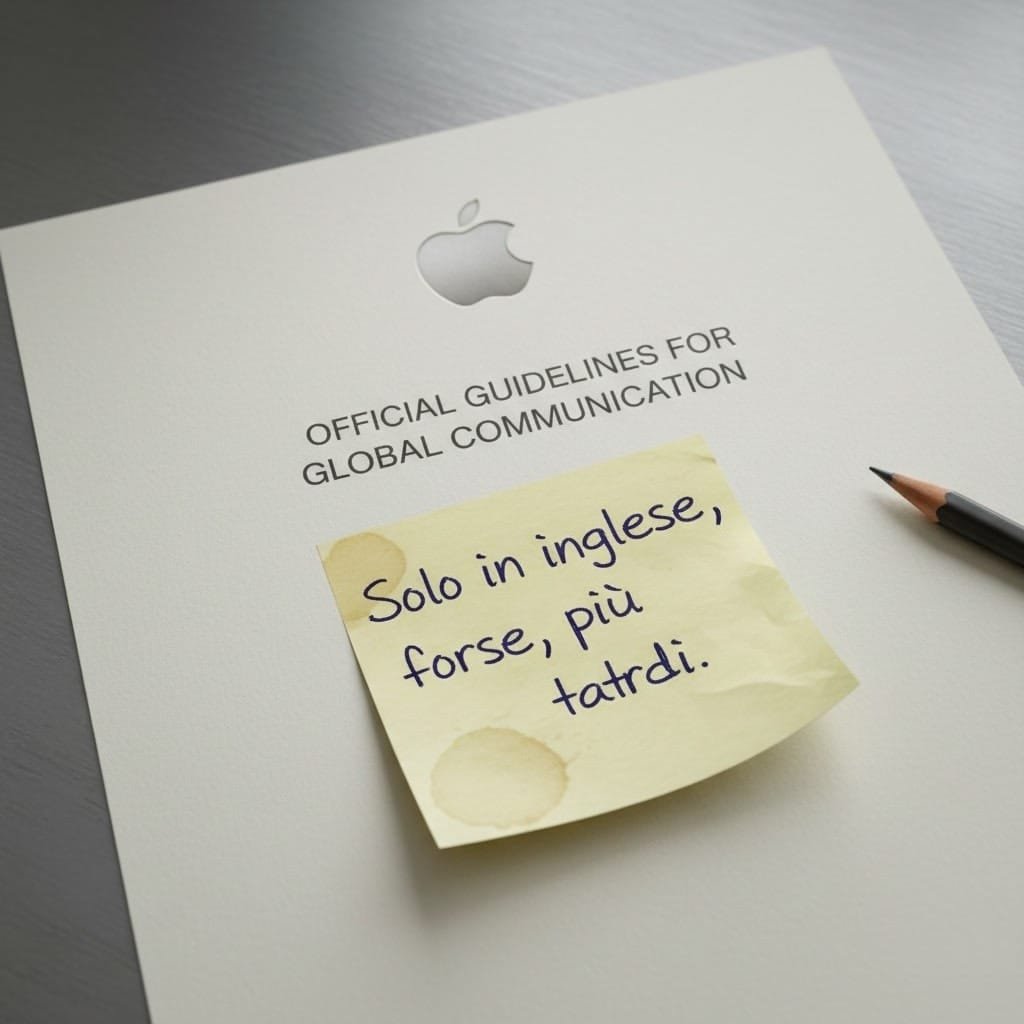 OFFICIAL GUIDELINES FOR
GLOBAL COMMUNICATION
Solo in inglese,
forse, più
tatrdi.